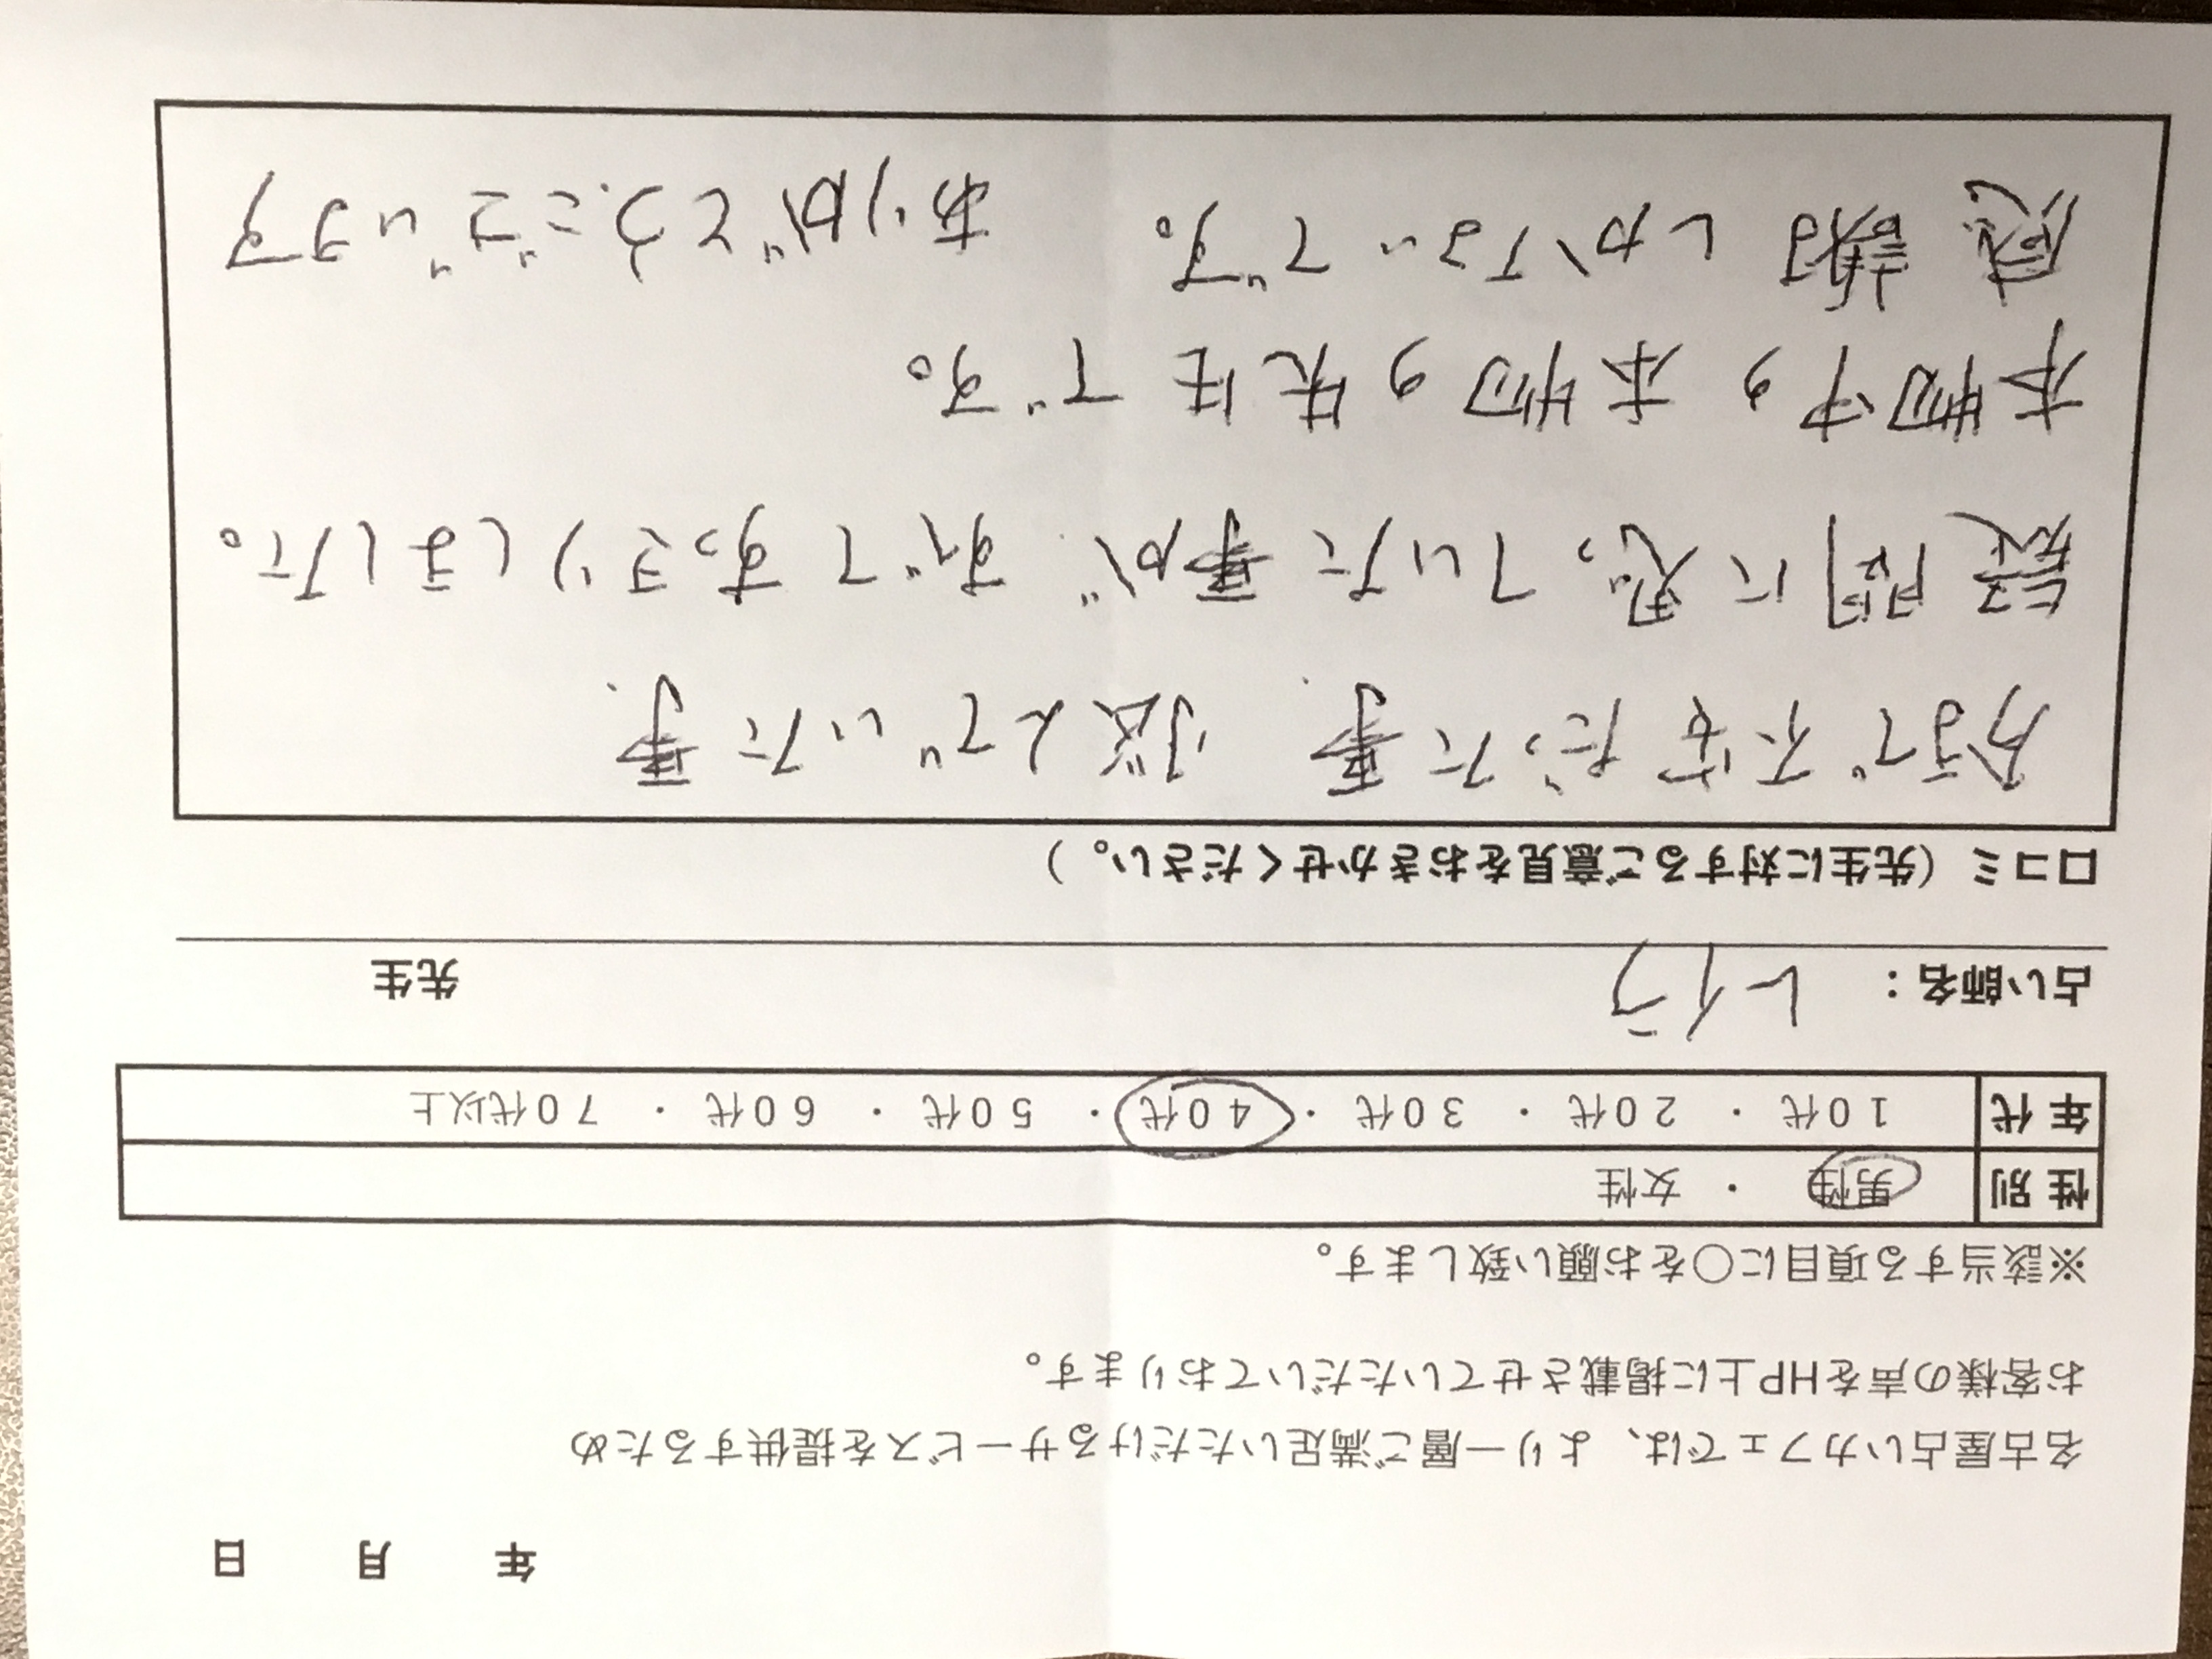 年 月 日
名古屋占いカフェでは、より一層ご満足いただけるサービスを提供するため
お客様の声をHP上に掲載させていただいております。
※該当する項目に○をお願い致します。
性別 男性 ・ 女性
年代 10代 ・ 20代 ・ 30代 ・ 40代 ・ 50代 ・ 60代 ・ 70代以上
占い師名： レイラ 先生
口コミ（先生に対するご意見をおきかせください。）
今まで不安だった事、悩んでいた事、
疑問に思っていた事が、すべてすっきりしました。
本物中の本物の先生です。
感謝しかないです。 ありがとうございます